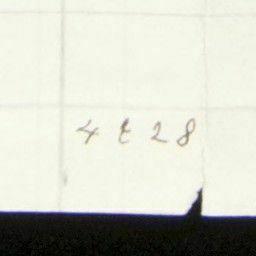 4 t 28